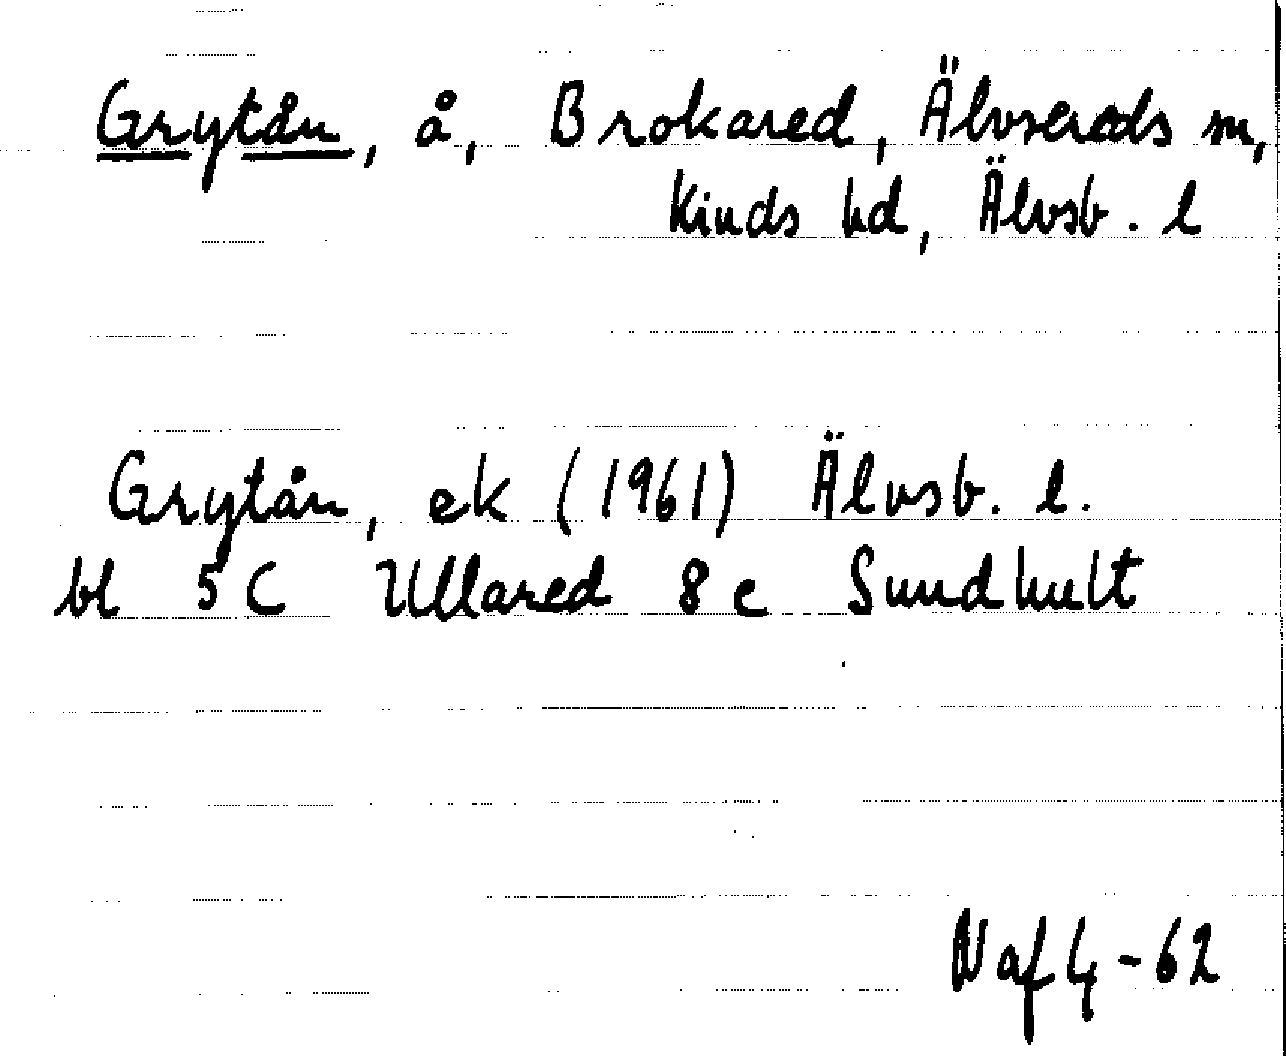 Grytån, å, Brokared, Älvsereds sn,
Kinds hd, Älvsb. l
Grytån, ek (1961) Älvsb. l.
bl 5C Ullared 8 c Sundhult
N af G -62